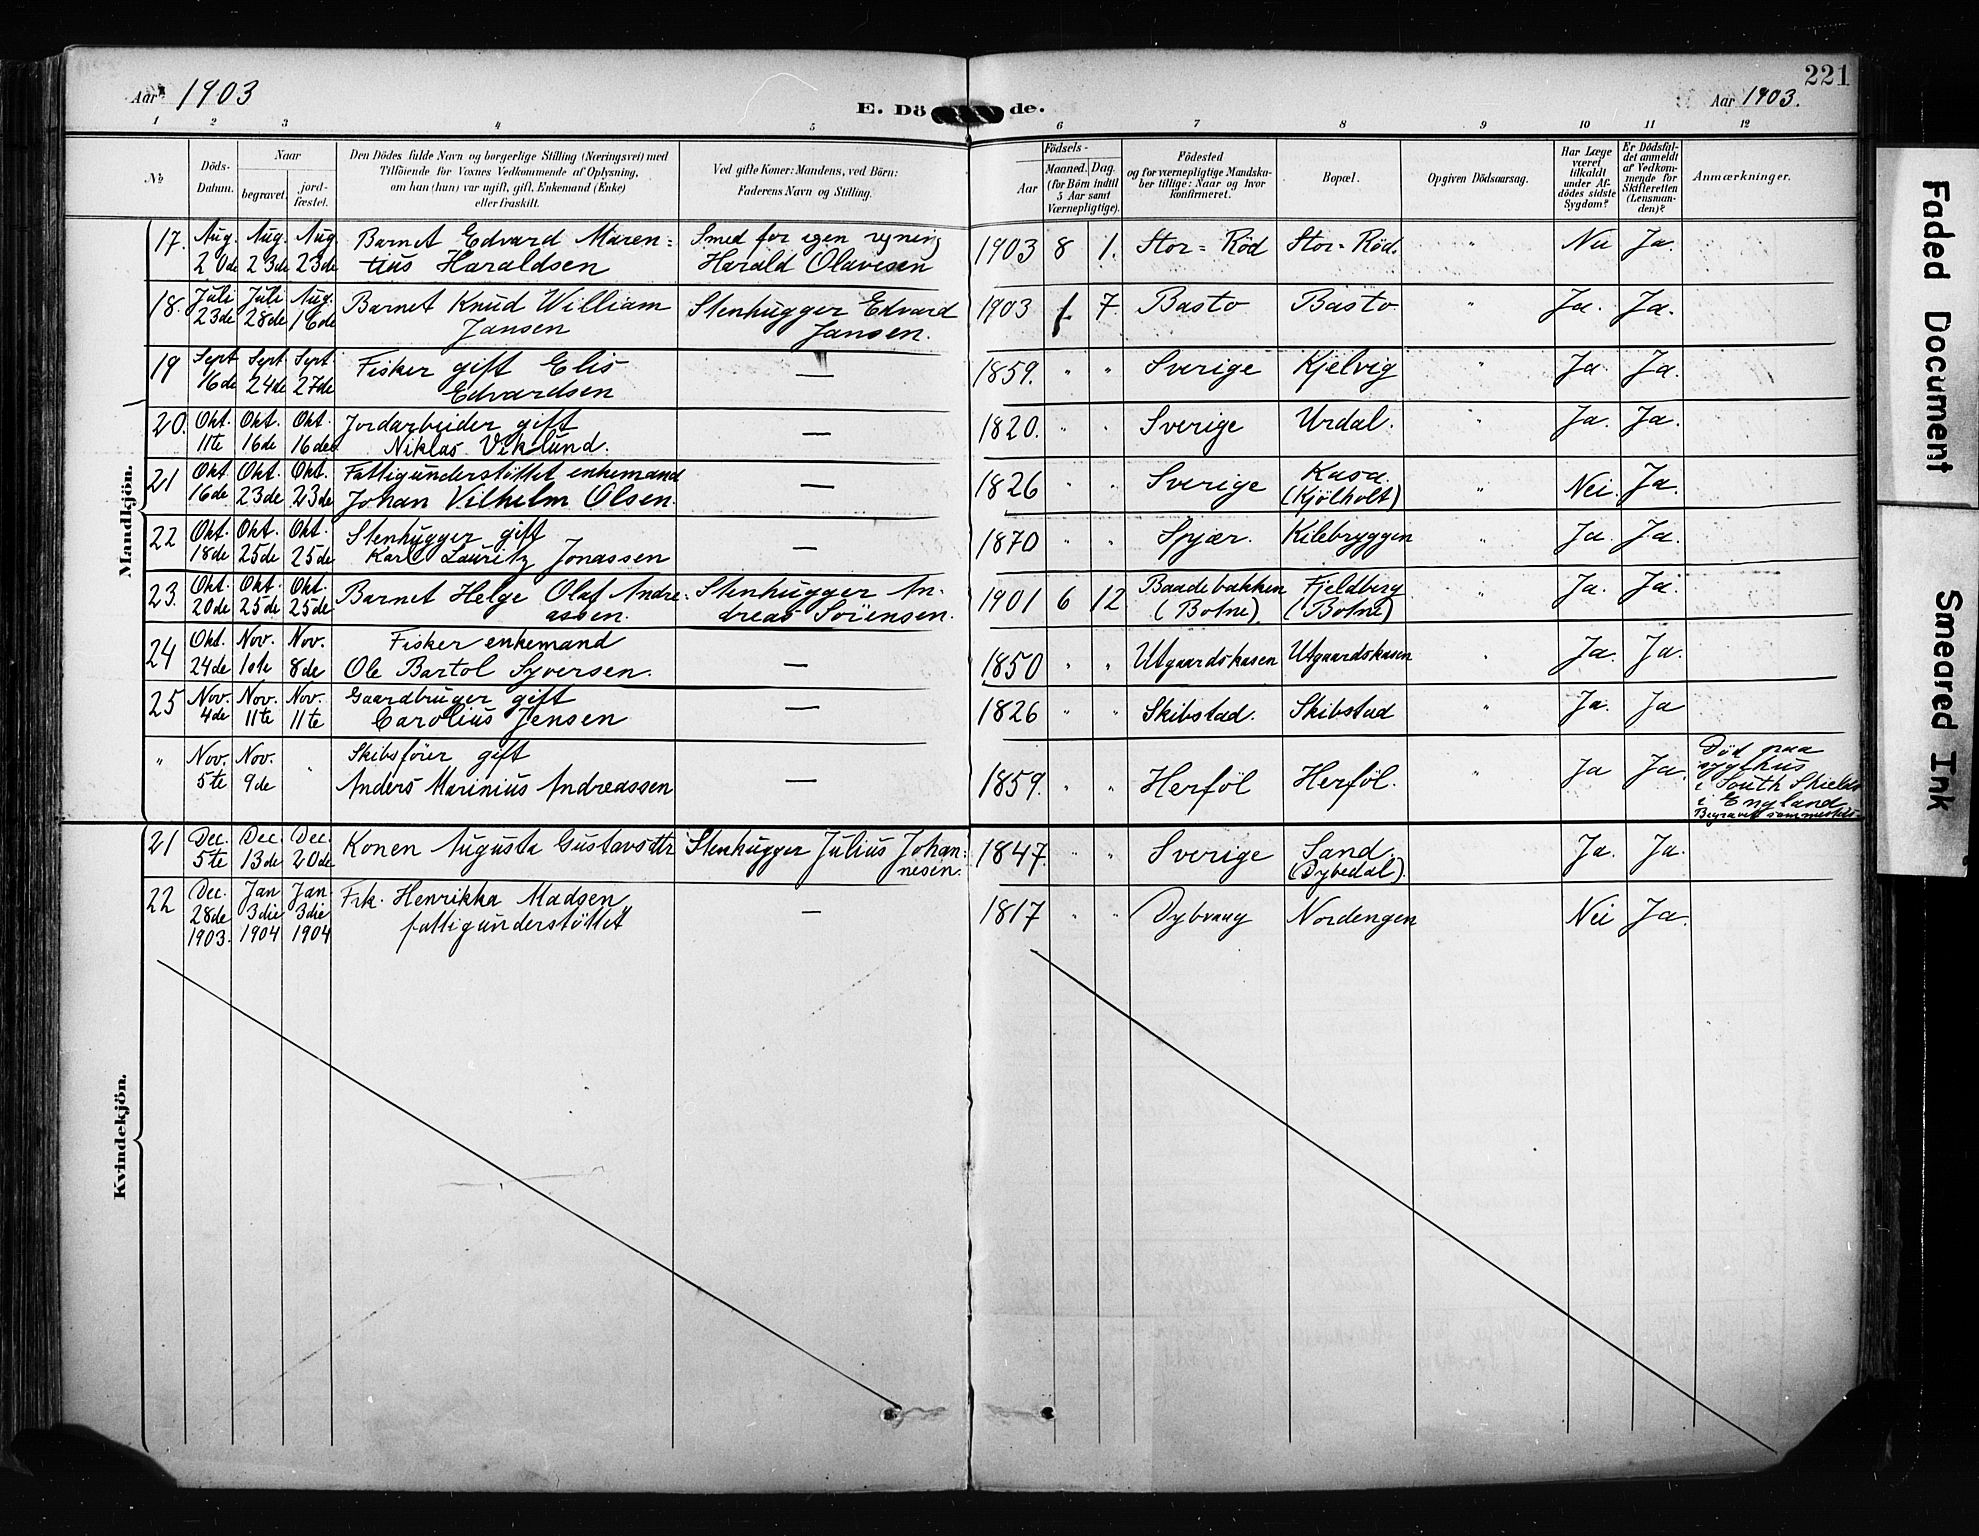 Aar 1903
E. Dö de.
Aar 1903.
221
1 2 3 4 5 6 7 8 9 10 11 12
№
Döds-Datum.
Naar
begravet.
jord-fæstet.
Den Dödes fulde Navn og borgerlige Stilling (Næringsvei) med
Tilföiende for Voxnes Vedkommende af Oplysning,
om han (hun) var ugift, gift, Enkemand (Enke)
eller fraskilt.
Ved gifte Koner: Mandens, ved Börn:
Faderens Navn og Stilling.
Födsels-
Aar
Maaned. Dag.
(for Börn indtil
5 Aar samt
Værnepligtige).
Födested
og for værnepligtige Mandska-
ber tillige: Naar og hvor
konfirmeret.
Bopæl.
Opgiven Dödsaarsag.
Har Læge
været
tilkaldt
under Af-
dödes sidste
Sygdom?
Er Dödsfal-
det anmeldt
af Vedkom-
mende for
Skifteretten
(Lensman-
den)?
Anmærkninger.
Mandkjön.
17. Aug. Aug. Aug. Barnet Edvard Maren= Smed for egen regning 1903 8 1. Stor=Röd Stor=Röd. " Ja.
20de 23de 23de tius Haraldsen Harald Olavesen
18. Juli Juli Aug. Barnet Knud William Stenhugger Edvard 1903 1. 7 Basto Basto " Ja. Ja.
23de 28de 16de Jansen Jansen.
19 Sept Sept. Sept Fisker gift Elis — 1859. " " Sverige Kjelvig " Ja. Ja.
16de 24de 27de Edvardsen
20. Okt. Okt. Okt. Jordarbeider gift — 1820. " " Sverige Urdal. " Ja. Ja.
11te 16de 16de Niklas Viklund.
21 Okt Okt. Okt. Fattigunderstöttet enkemand — 1826 " " Sverige Kasa. " Nei. Ja.
16de 23de 23de Johan Vilhelm Olsen. (Kjölholt)
22 Okt. Okt. Okt. Stenhugger gift — 1870 " " Spjær. Kilebryggen " Ja. Ja.
18de 25de 25de Karl Lauritz Jonassen
23. Okt. Okt. Okt. Barnet Helge Olaf Andre- Stenhugger An- 1901 6 12 Baadebakken Fjeldberg Ja. Ja.
20de 25de 25de assen. dreas Sörensen. (Botne) (Botne)
24 Okt. Nov. Nov. Fisker enkemand — 1850 " " Utgaardskasen Utgaardskasen " Ja. Ja.
24de 1ste 8de Ole Bartol Syversen.
25 Nov. Nov. Nov. Gaardbruger gift — 1826 " " Skibstad. Skibstad " Ja. Ja
4de 11te 11te Carolius Jensen
" Nov. Nov. " Skibsförer gift — 1859. " " Herföl Herföl. " Ja Ja.
5te 9de Anders Marinius Andreassen
Död paa
sygehus
i South Shields
i England
Begravet sammesteds.
Kvindekjön.
21 Dec. Dec Dec. Konen Augusta Gustavsdtr Stenhugger Julius Johan- 1847. " " Sverige Sand. Ja. Ja.
5te 13de 20de nesen. (Dybedal).
22 Dec. Jan Jan. Frk. Henrikka Madsen — 1817 " " Dybvaag Nordengen Nei Ja.
28de 3die 3die fattigunderstöttet
1903. 1904 1904
Faded Document
Smeared Ink